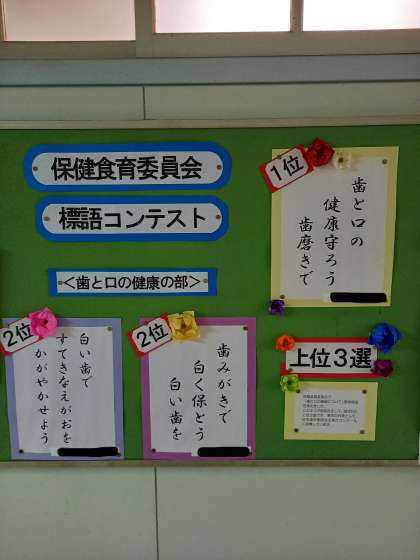 保健食育委員会
標語コンテスト
<歯と口の健康の部>
1位
歯と口の
健康守ろう
歯磨きで
2位
歯みがきで
白く保とう
白い歯を
2位
白い歯で
すてきなえがおを
かがやかせよう
上位3選